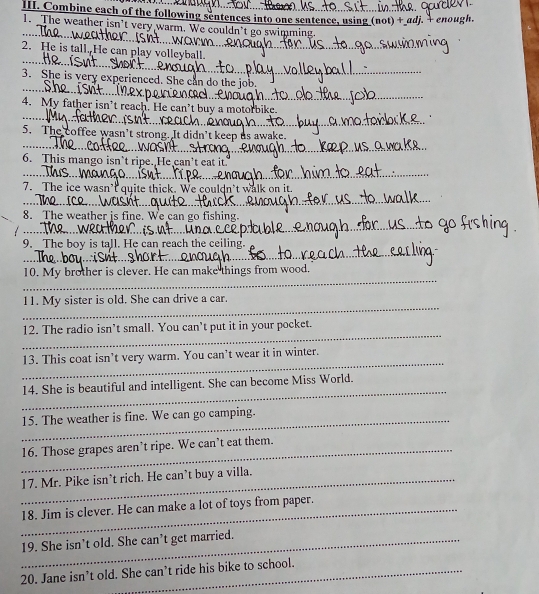 enough for us to sit in the garden.
III. Combine each of the following sentences into one sentence, using (not) + adj. + enough.
1. The weather isn't very warm. We couldn't go swimming.
The weather isnt warm enough for us to go swimming.
2. He is tall. He can play volleyball.
He isnt short enough to play volleyball.
3. She is very experienced. She can do the job.
She isnt inexperienced enough to do the job
4. My father isn't reach. He can't buy a motorbike.
My father isn't reach enough to buy a motorbike.
5. The coffee wasn't strong. It didn't keep us awake.
The coffee wasnt strong enough to keep us awake.
6. This mango isn't ripe. He can't eat it.
This mango isnt ripe enough for him to eat.
7. The ice wasn't quite thick. We couldn't walk on it.
The ice wasnt quite thick enough for us to walk.
8. The weather is fine. We can go fishing.
The weather isnt unacceptable enough for us to go fishing.
9. The boy is tall. He can reach the ceiling.
The boy isnt short enough to reach the ceiling.
10. My brother is clever. He can make things from wood.
11. My sister is old. She can drive a car.
12. The radio isn't small. You can't put it in your pocket.
13. This coat isn't very warm. You can't wear it in winter.
14. She is beautiful and intelligent. She can become Miss World.
15. The weather is fine. We can go camping.
16. Those grapes aren't ripe. We can't eat them.
17. Mr. Pike isn't rich. He can't buy a villa.
18. Jim is clever. He can make a lot of toys from paper.
19. She isn't old. She can't get married.
20. Jane isn't old. She can't ride his bike to school.